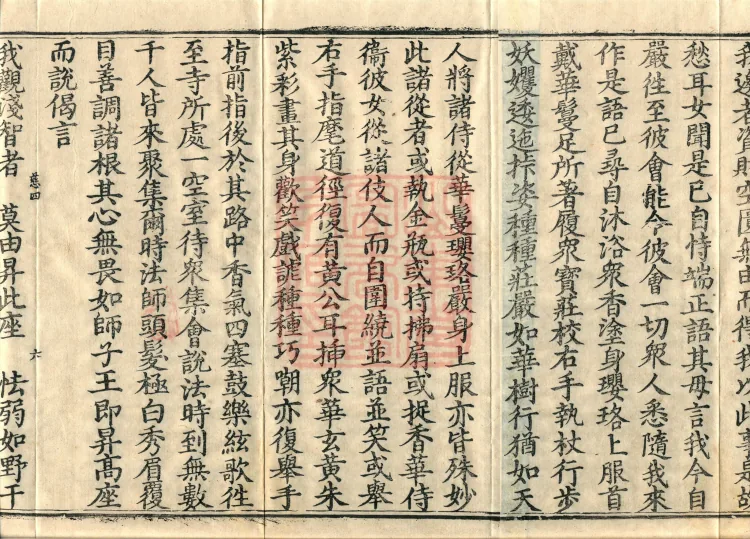 空匱無由而得我以此事是故
愁耳女聞是已自恃端正語其母言我今自
嚴往至彼會能令彼會一切衆人悉隨我來
作是語已尋自沐浴衆香塗身瓔珞上服首
戴華鬘足所著履衆寶莊校右手執杖行步
妖孆逶迤姿種種莊嚴如華樹行猶如天
人將諸侍從華鬘瓔珞嚴身上服亦皆殊妙
此諸從者或執金瓶或持拂扇或捉香華侍
衞彼女從諸伎人而自圍繞並語並笑或舉
右手指麾道徑復有黃公耳插衆華玄黃朱
紫彩畫其身歡笑戲謔種種巧嘲亦復舉手
指前指後於其路中香氣四塞鼓樂絃歌往
至寺所處一空室待衆集會說法時到無數
千人皆來聚集爾時法師頭髮極白秀眉覆
目善調諸根其心無畏如師子王即昇高座
而說偈言
慈四 六
我觀淺智者 莫由昇此座 怯弱如野干